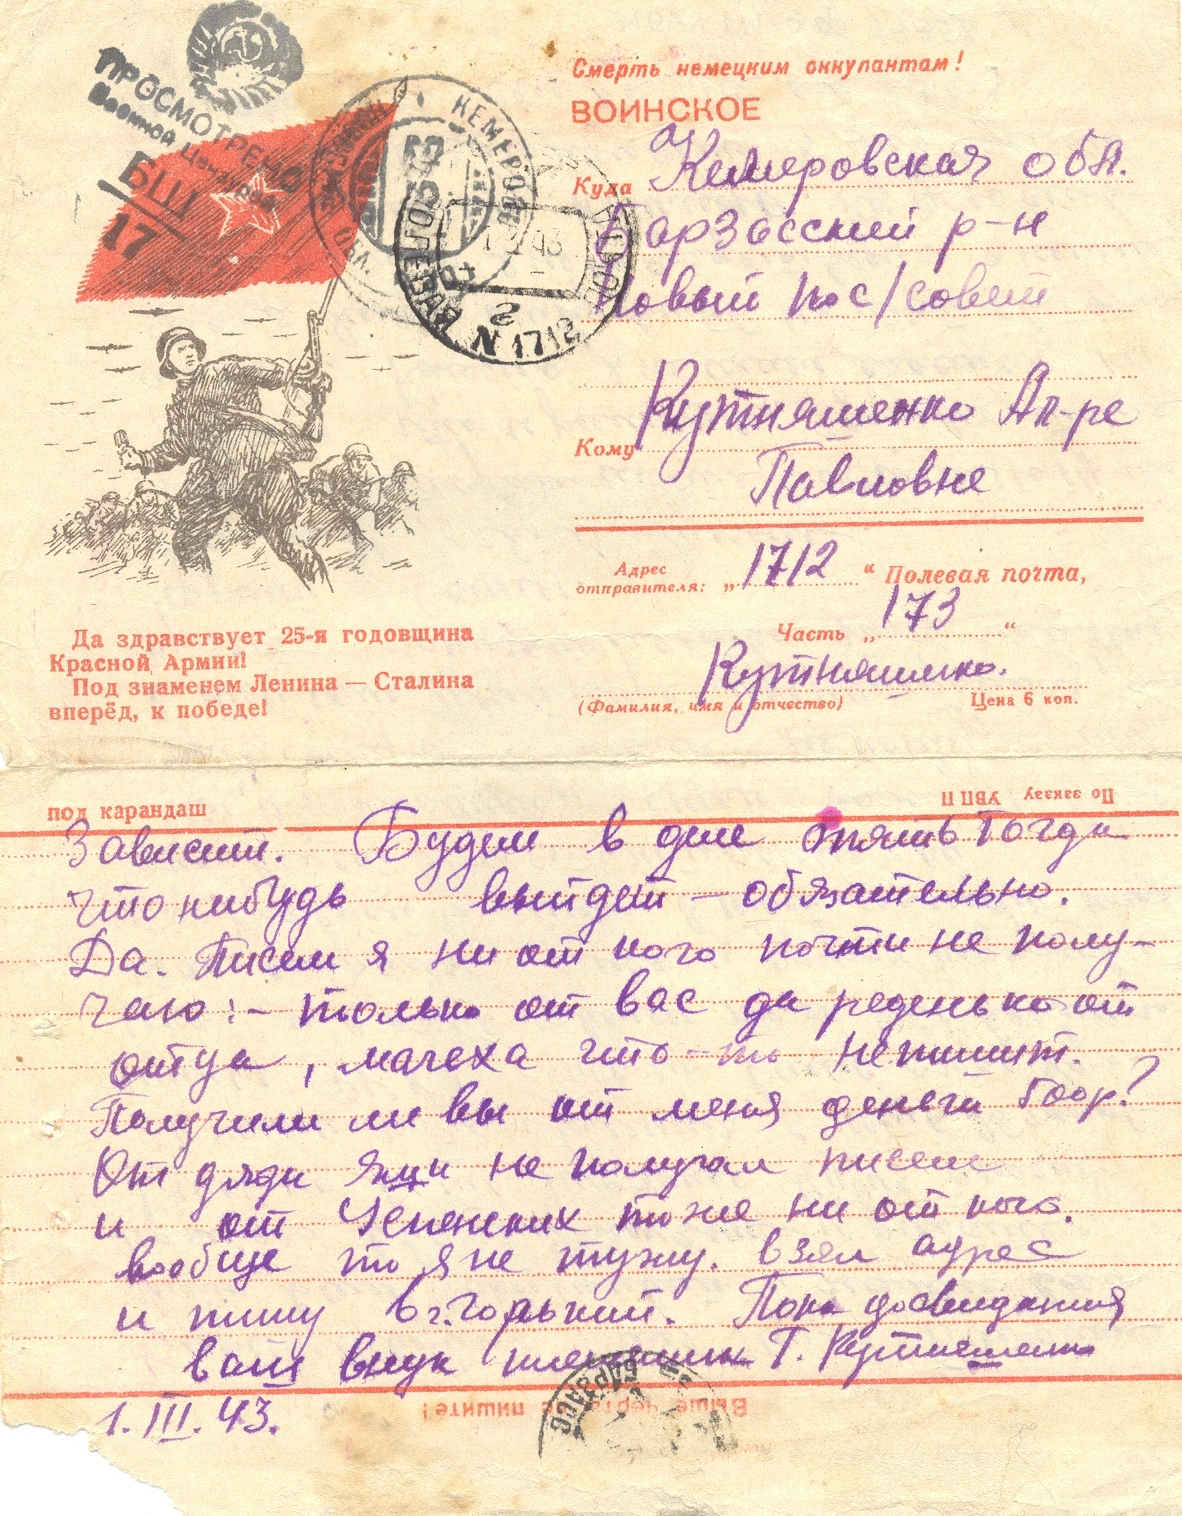 ПРОСМОТРЕНО
Военной Цензурой
БШ
17
КЕМЕРОВ
ОБЛ.
N 1712
Смерть немецким оккупантам!
ВОИНСКОЕ
Куда Кемеровская обл.
Барзасский р-н
Новый пос/совет
Кому Кутняшенко Ал-ре
Павловне
Адрес отправителя: „1712“ Полевая почта,
Часть „173“
Кутняшенко.
(Фамилия, имя и отчество) Цена 6 коп.
Да здравствует 25-я годовщина
Красной Армии!
Под знаменем Ленина — Сталина
вперёд, к победе!
под карандаш
По заказу УВП П
Зависит. Будем в деле опять тогда
что нибудь выйдет — обязательно.
Да. Писем я ни от кого почти не полу-
чаю:- только от вас да реденько от
отца, мачеха что-то непишит.
Получили ли вы от меня деньги
От дяди Яши не получал писем
и от Успенских тоже ни от кого.
вообще то я не тужу. взял адрес
и пишу в г.Горький. Пока досвидания
ваш внук племяник Г. Кутняшенко
1.III.43.
Выше черты не пишите!
БАРЗАС